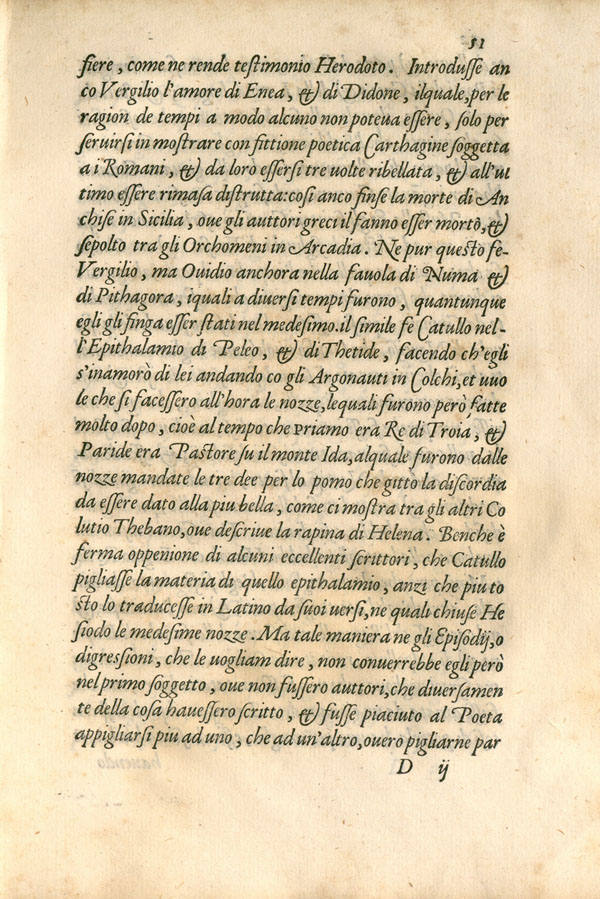 51
fiere, come ne rende testimonio Herodoto. Introdusse an
co Vergilio l'amore di Enea, & di Didone, ilquale, per le
ragion de tempi a modo alcuno non poteua essere, solo per
seruirsi in mostrare con fittione poetica Carthagine soggetta
a i Romani, & da loro essersi tre uolte ribellata, & all'ul
timo essere rimasa distrutta: cosi anco finse la morte di An
chise in Sicilia, oue gli auttori greci il fanno esser morto, &
sepolto tra gli Orchomeni in Arcadia. Ne pur questo fe-
Vergilio, ma Ouidio anchora nella fauola di Numa &
di Pithagora, iquali a diuersi tempi furono, quantunque
egli gli finga esser stati nel medesimo. il simile fè Catullo nel-
l'Epithalamio di Peleo, & di Thetide, facendo ch'egli
s'inamorò di lei andando co gli Argonauti in Colchi, et uuo
le che si facessero all'hora le nozze, lequali furono però fatte
molto dopo, cioè al tempo che Priamo era Re di Troia, &
Paride era Pastore su il monte Ida, alquale furono dalle
nozze mandate le tre dee per lo pomo che gittò la discordia
da essere dato alla piu bella, come ci mostra tra gli altri Co
lutio Thebano, oue descriue la rapina di Helena. Benche è
ferma oppenione di alcuni eccellenti scrittori, che Catullo
pigliasse la materia di quello epithalamio, anzi che piu to
sto lo traducesse in Latino da suoi uersi, ne quali chiuse He
siodo le medesime nozze. Ma tale maniera ne gli Episodij, o
digressioni, che le uogliam dire, non conuerrebbe egli però
nel primo soggetto, oue non fussero auttori, che diuersamen
te della cosa hauessero scritto, & fusse piaciuto al Poeta
appigliarsi piu ad uno, che ad un'altro, ouero pigliarne par
D ij